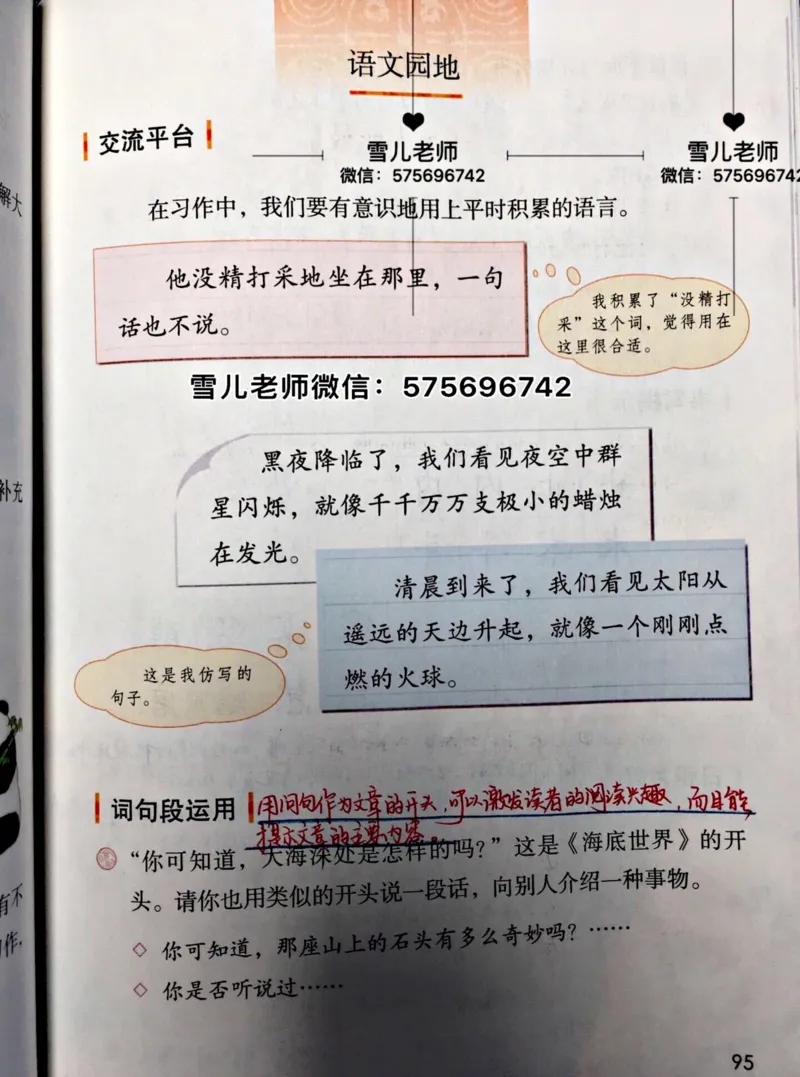 语文园地
交流平台
雪儿老师
微信：575696742
雪儿老师
微信：575696742
在习作中，我们要有意识地用上平时积累的语言。
解大
他没精打采地坐在那里，一句
话也不说。
我积累了“没精打
采”这个词，觉得用在
这里很合适。
雪儿老师微信：575696742
黑夜降临了，我们看见夜空中群
星闪烁，就像千千万万支极小的蜡烛
在发光。
补充
清晨到来了，我们看见太阳从
遥远的天边升起，就像一个刚刚点
燃的火球。
这是我仿写的
句子。
词句段运用
用问句作为文章的开头，可以激发读者的阅读兴趣，而且能
提示文章的主要内容。
“你可知道，大海深处是怎样的吗？”这是《海底世界》的开
头。请你也用类似的开头说一段话，向别人介绍一种事物。
有不
作，
◇ 你可知道，那座山上的石头有多么奇妙吗？……
◇ 你是否听说过……
95